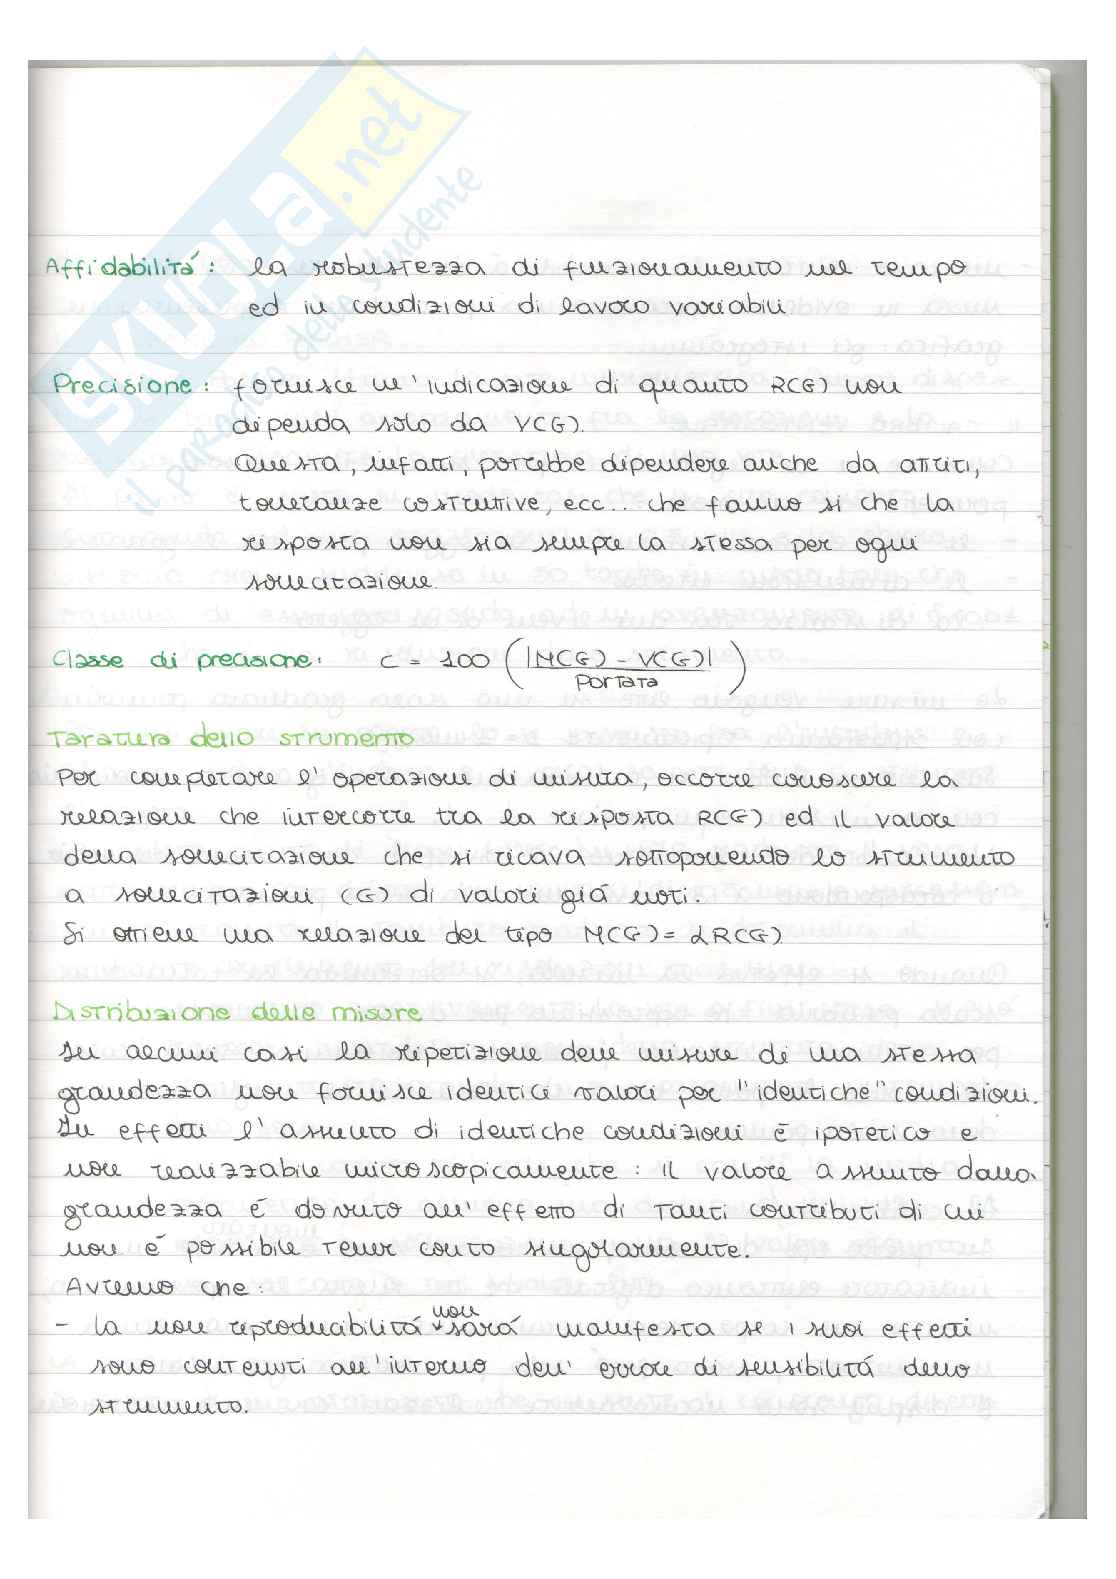 SKUOLA.net
il paradiso dello studente
Affidabilitá: la robustezza di funzionamento nel tempo
ed in condizioni di lavoro variabili
Precisione: fornisce un'indicazione di quanto R(G) non
dipenda solo da V(G).
Questa, infatti, potrebbe dipendere anche da attriti,
tolleranze costruttive, ecc.. che fanno si che la
risposta non sia sempre la stessa per ogni
sollecitazione.
Classe di precisione: c = 100 ( |M(G) - V(G)| / PORTATA )
Taratura dello strumento
Per completare l'operazione di misura, occorre conoscere la
relazione che intercorre tra la risposta R(G) ed il valore
della sollecitazione che si ricava sottoponendo lo strumento
a sollecitazioni (G) di valori giá noti.
Si ottiene una relazione del tipo M(G) = αR(G)
Distribuzione delle misure
In alcuni casi la ripetizione delle misure di una stessa
grandezza non fornisce identici valori per "identiche" condizioni.
In effetti l'assunto di identiche condizioni é ipotetico e
non realizzabile microscopicamente: il valore assunto dalla
grandezza é dovuto all'effetto di tanti contributi di cui
non é possibile tener conto singolarmente.
Avremo che:
- la non riproducibilitá non sará manifesta se i suoi effetti
sono contenuti all'interno dell'errore di sensibilitá dello
strumento.